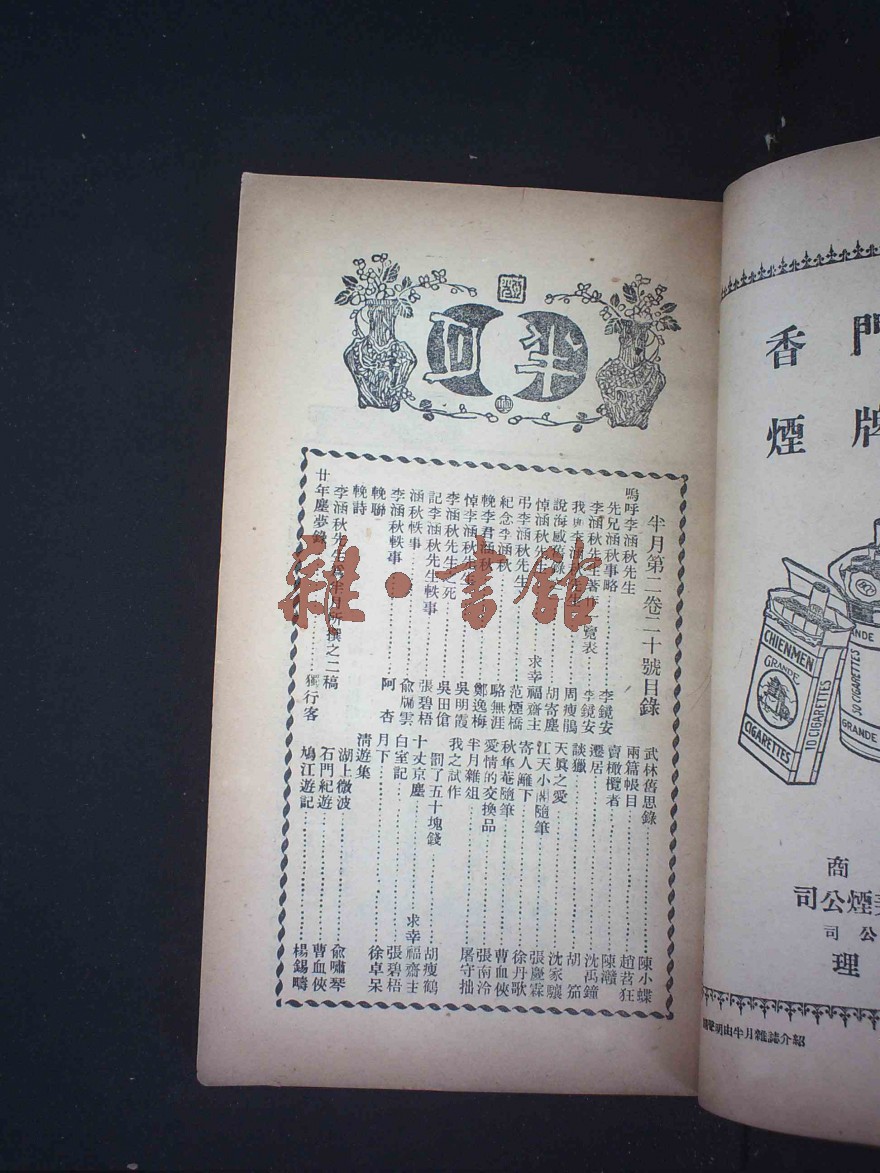 半月
半月第二卷二十號目錄
嗚呼李涵秋先生
先兄涵秋事略 李鏡安
李涵秋先生著作 覽表 李鏡安
我與李涵秋先生 周瘦鵑
說海感舊錄 胡寄塵
悼涵秋先生 求幸福齋主
弔李涵秋先生 范煙橋
紀念李涵秋 駱無涯
輓李君涵秋 鄭逸梅
悼李涵秋先生 吳明霞
李涵秋先生之死 吳田傖
記李涵秋先生軼事 張碧梧
涵秋軼事 俞牖雲
李涵秋軼事 阿杏
輓聯
輓詩
李涵秋先生為半月所撰之二稿
廿年塵夢錄 獨行客
武林舊思錄 陳小蝶
兩篇帳目 趙苕狂
賣橄欖者 陳瀆
遷居 沈禹鐘
談獵 胡笳
天真之愛 沈家驤
江天小閣隨筆 張慶霖
寄人籬下 徐丹歌
秋隼菴隨筆 曹血俠
愛情的交換品 張南泠
半月雜俎 屠守拙
我之試作
罰了五十塊錢 胡瘦鶴
十丈京塵 求幸福齋主
白室記 張碧梧
月下 徐卓呆
清遊集
湖上微波 俞嘯琴
石門紀遊 曹血俠
鳩江遊記 楊錫疇
雜·書館
門
牌
香
煙
CHIENMEN
GRANDE
10 CIGARETTES
CIGARETTES
50 CIGARETTES
GRANDE
商
煙公司
公司
理
聲明由半月雜誌介紹